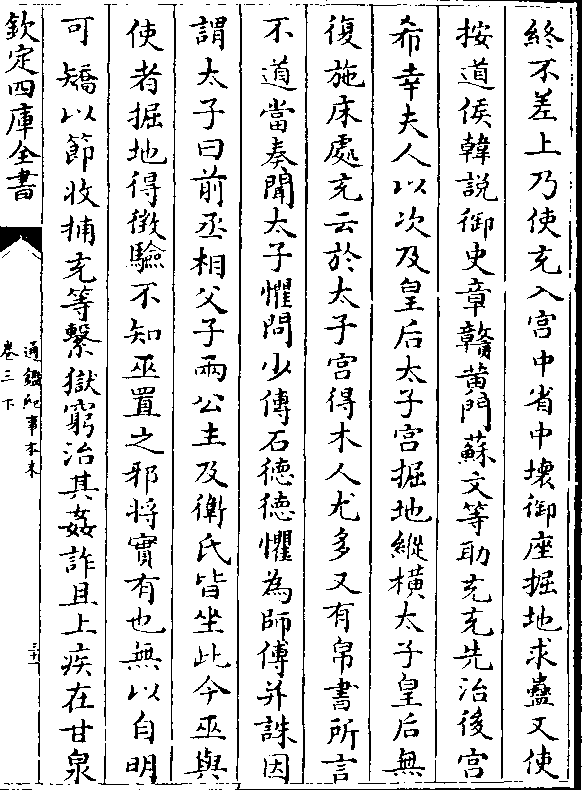 終不差上乃使充入宮中省中壞御座掘地求蠱又使
按道侯韓說御史章贛黄門蘇文等助充充先治後宮
希幸夫人以次及皇后太子宮掘地縱橫太子皇后無
復施床處充云於太子宮得木人尤多又有帛書所言
不道當奏聞太子懼問少傅石德德懼為師傅并誅因
謂太子曰前丞相父子兩公主及衛氏皆坐此今巫與
使者掘地得徴驗不知巫置之邪將實有也無以自明
可矯以節收捕充等繫獄窮治其姦詐且上疾在甘泉
欽定四庫全書
通鑑紀事本末
卷三下